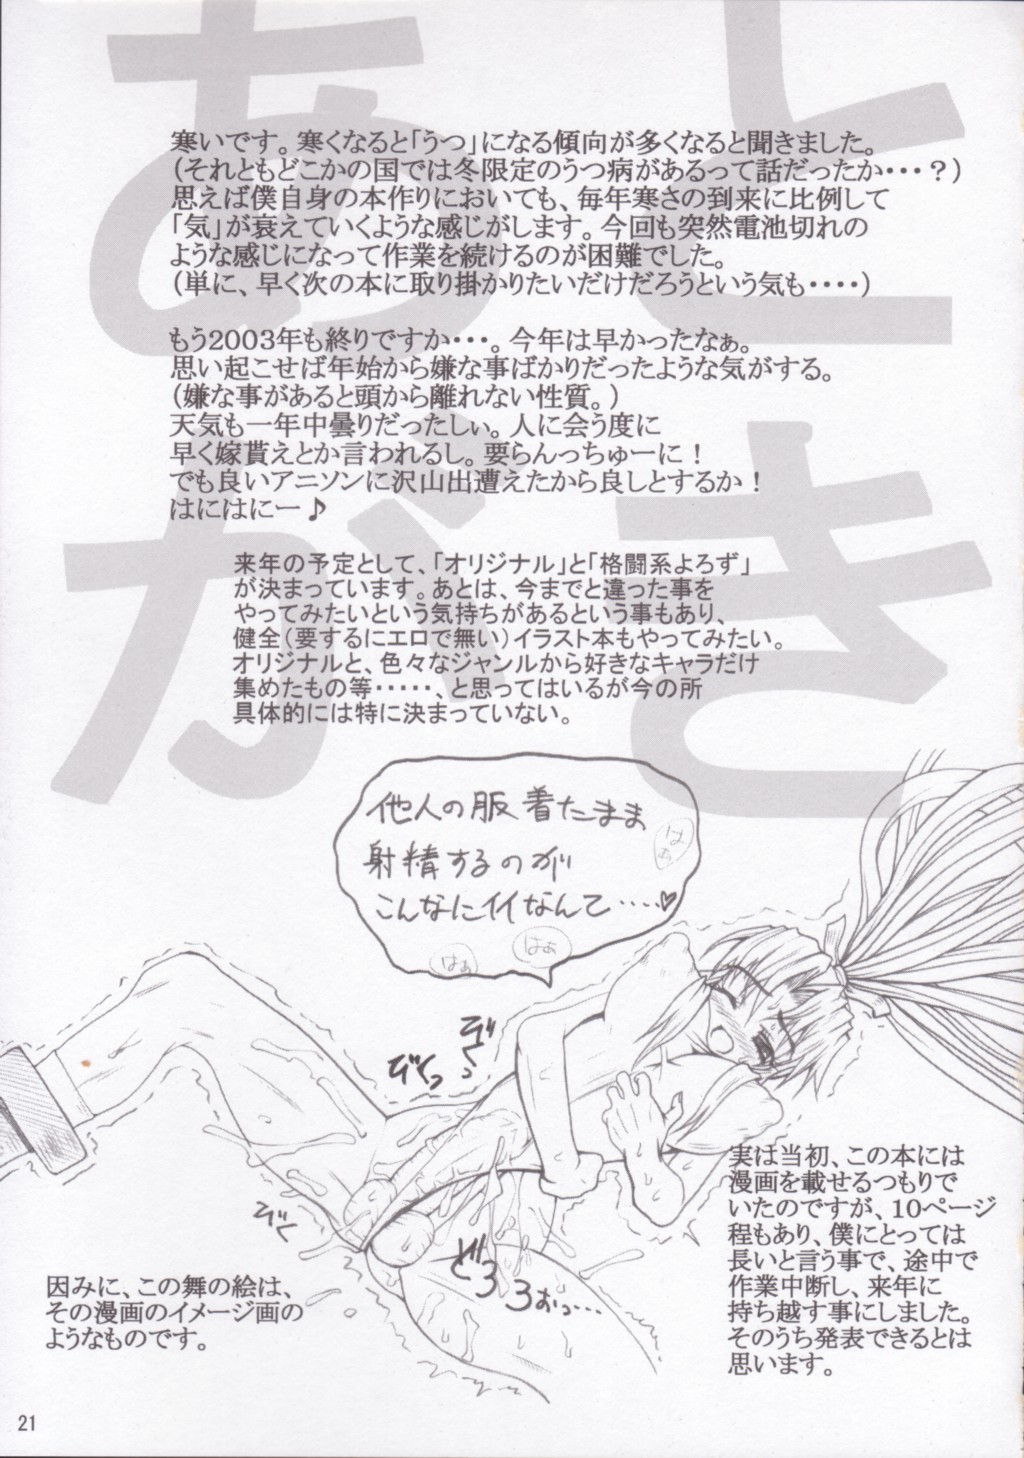 あとがき
寒いです。寒くなると「うつ」になる傾向が多くなると聞きました。
(それともどこかの国では冬限定のうつ病があるって話だったか・・・?)
思えば僕自身の本作りにおいても、毎年寒さの到来に比例して
「気」が衰えていくような感じがします。今回も突然電池切れの
ような感じになって作業を続けるのが困難でした。
(単に、早く次の本に取り掛かりたいだけだろうという気も・・・・)
もう2003年も終りですか・・・。今年は早かったなぁ。
思い起こせば年始から嫌な事ばかりだったような気がする。
(嫌な事があると頭から離れない性質。)
天気も一年中曇りだったしぃ。人に会う度に
早く嫁貰えとか言われるし。要らんっちゅーに!
でも良いアニソンに沢山出遭えたから良しとするか!
はにはにー♪
来年の予定として、「オリジナル」と「格闘系よろず」
が決まっています。あとは、今までと違った事を
やってみたいという気持ちがあるという事もあり、
健全(要するにエロで無い)イラスト本もやってみたい。
オリジナルと、色々なジャンルから好きなキャラだけ
集めたもの等・・・・・、と思ってはいるが今の所
具体的には特に決まっていない。
他人の服着たまま
射精するのが
こんなにイイなんて……♡
はぁ
はぁ
はぁ
びくっ
びくっ
びく
どろろぉっ…
実は当初、この本には
漫画を載せるつもりで
いたのですが、10ページ
程もあり、僕にとっては
長いと言う事で、途中で
作業中断し、来年に
持ち越す事にしました。
そのうち発表できるとは
思います。
因みに、この舞の絵は、
その漫画のイメージ画の
ようなものです。
21